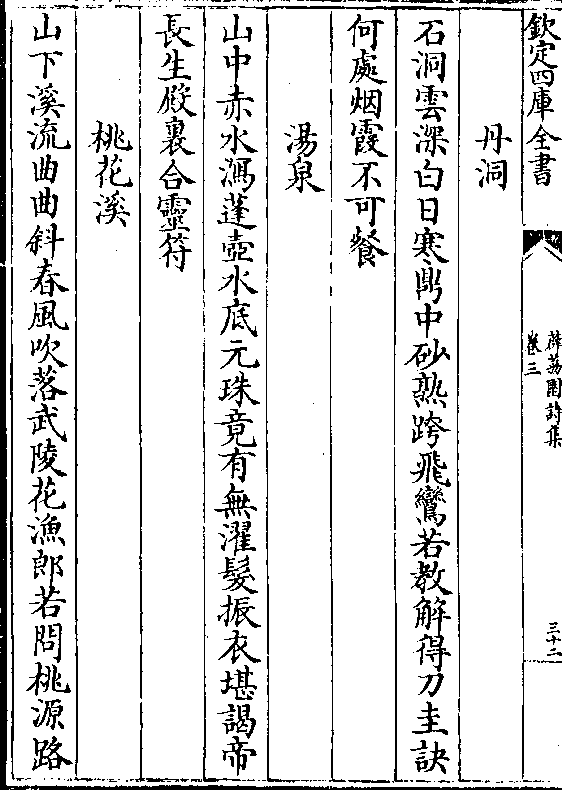 欽定四庫全書
薜荔園詩集
卷三
三十二
丹洞
石洞雲深白日寒鼎中砂熟跨飛鸞若教解得刀圭訣
何處烟霞不可餐
湯泉
山中赤水瀉蓬壺水底元珠竟有無濯髮振衣堪謁帝
長生殿裏合靈符
桃花溪
山下溪流曲曲斜春風吹落武陵花漁郎若問桃源路